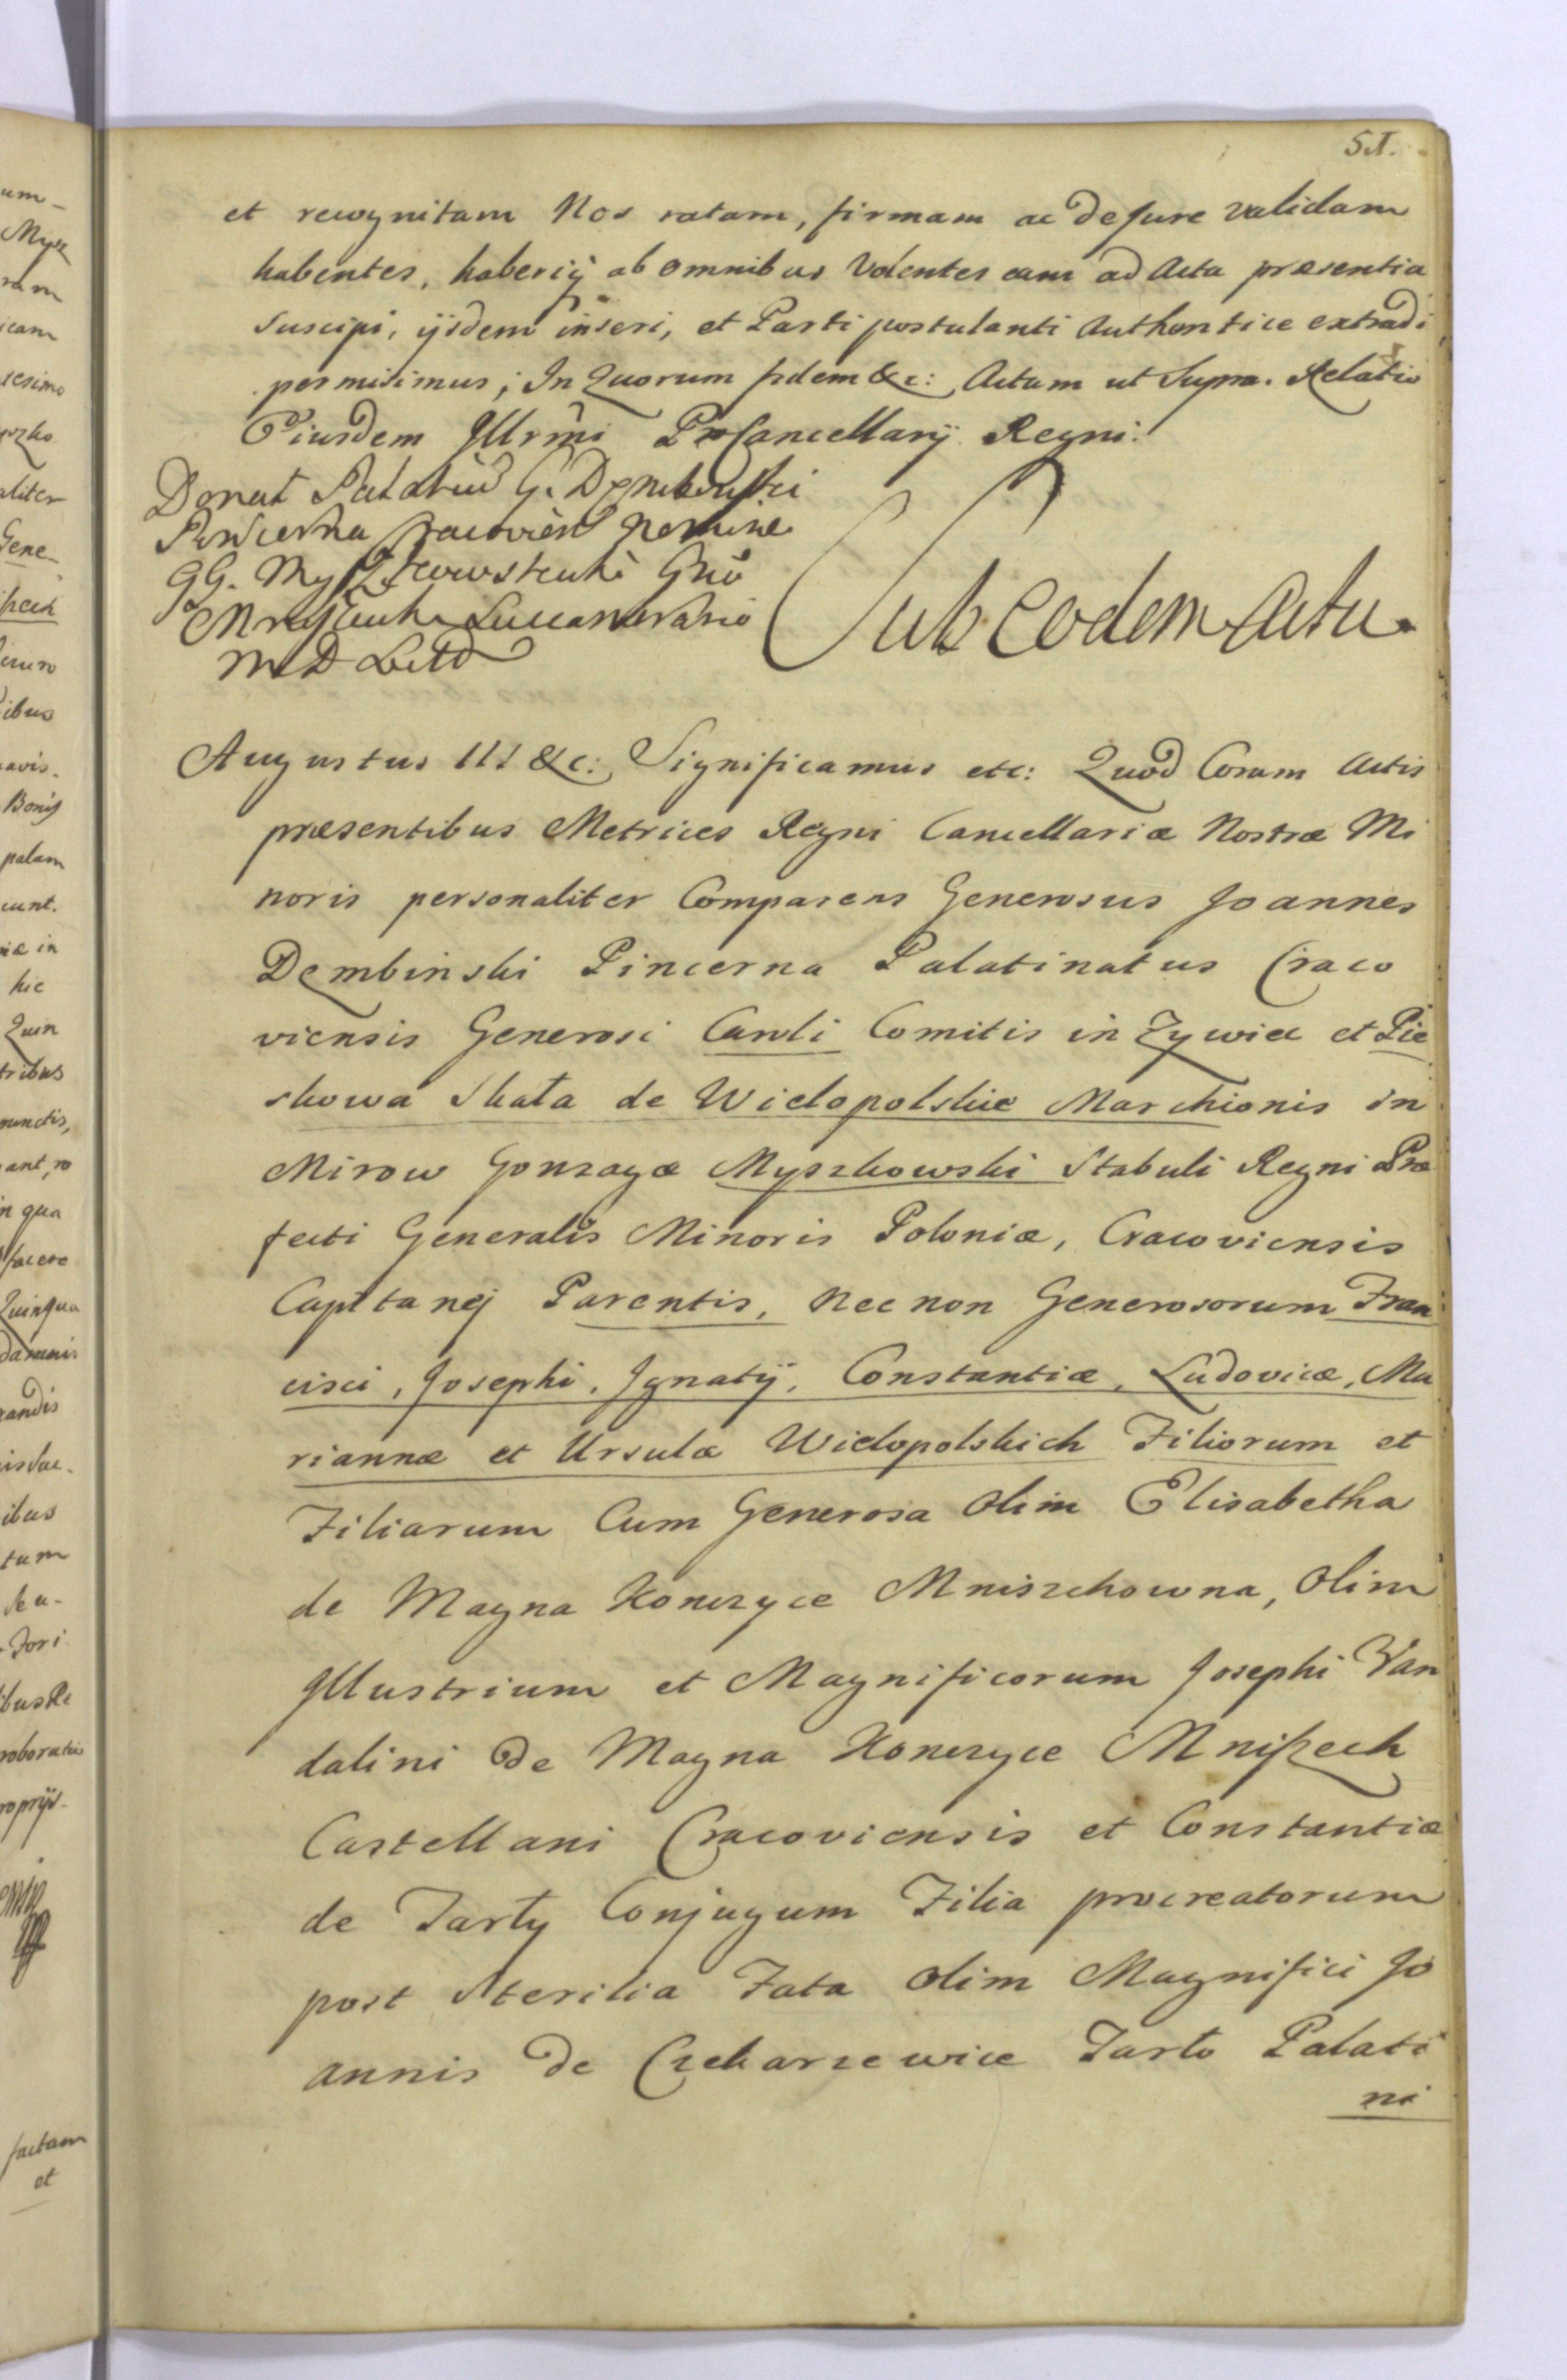 51.
et recognitam Nos ratam, firmam ac de Jure validam
habentes, haberiq̃ ab omnibus Volentes eam ad Acta præsentia
suscipi, ijsdem inseri, et Parti postulanti Authentice extradi
permisimus; In Quorum fidem &c: Actum ut Supra. Relatio
Eiusdem Illrmi ProCancellarÿ Regni.
G. Dembinski
Pincerna Cracovien Nomine
GG.
Sub Eodem Actu.
Augustus III &c: Significamus etc: Quod Coram Actis
præsentibus Metrices Regni Cancellariæ Nostræ Mi
noris personaliter Comparens Generosus Joannes
Dembinski Pincerna Palatinatus Craco
viensis Generosi Caroli Comitis in Zywiec et Pie
skowa Skała de Wielopolskie Marchionis in
Mirow Gonzagæ Myszkowski Stabuli Regni Præ
fecti Generalis Minoris Poloniæ, Cracoviensis
Capitanej Parentis, nec non Generosorum Fran
cisci, Josephi, Ignatÿ, Constantiæ, Ludovicæ, Ma
riannæ et Ursulæ Wielopolskich Filiorum et
Filiarum Cum Generosa olim Elisabetha
de Magna Konczyce Mniszchowna, olim
Illustrium et Magnificorum Josephi Van
dalini de Magna Konczyce Mniszech
Castellani Cracoviensis et Constantiæ
de Tarły Conjugum Filia procreatorum
post Sterilia Fata olim Magnifici Jo
annis de Czekarzewice Tarło Palati
ni